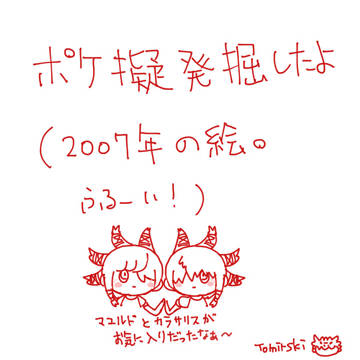 ポケ擬発掘したよ
(2007年の絵。
ふるーい!)
マユルドとカラサリスが
お気に入りだったなぁ〜
Tomirski